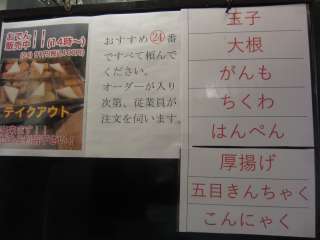 おでん
販売中！！(14時～)
テイクアウト
おすすめ㉔番
ですべて頼んで
ください。
オーダーが入り
次第、従業員が
注文を伺います。
玉子
大根
がんも
ちくわ
はんぺん
厚揚げ
五目きんちゃく
こんにゃく